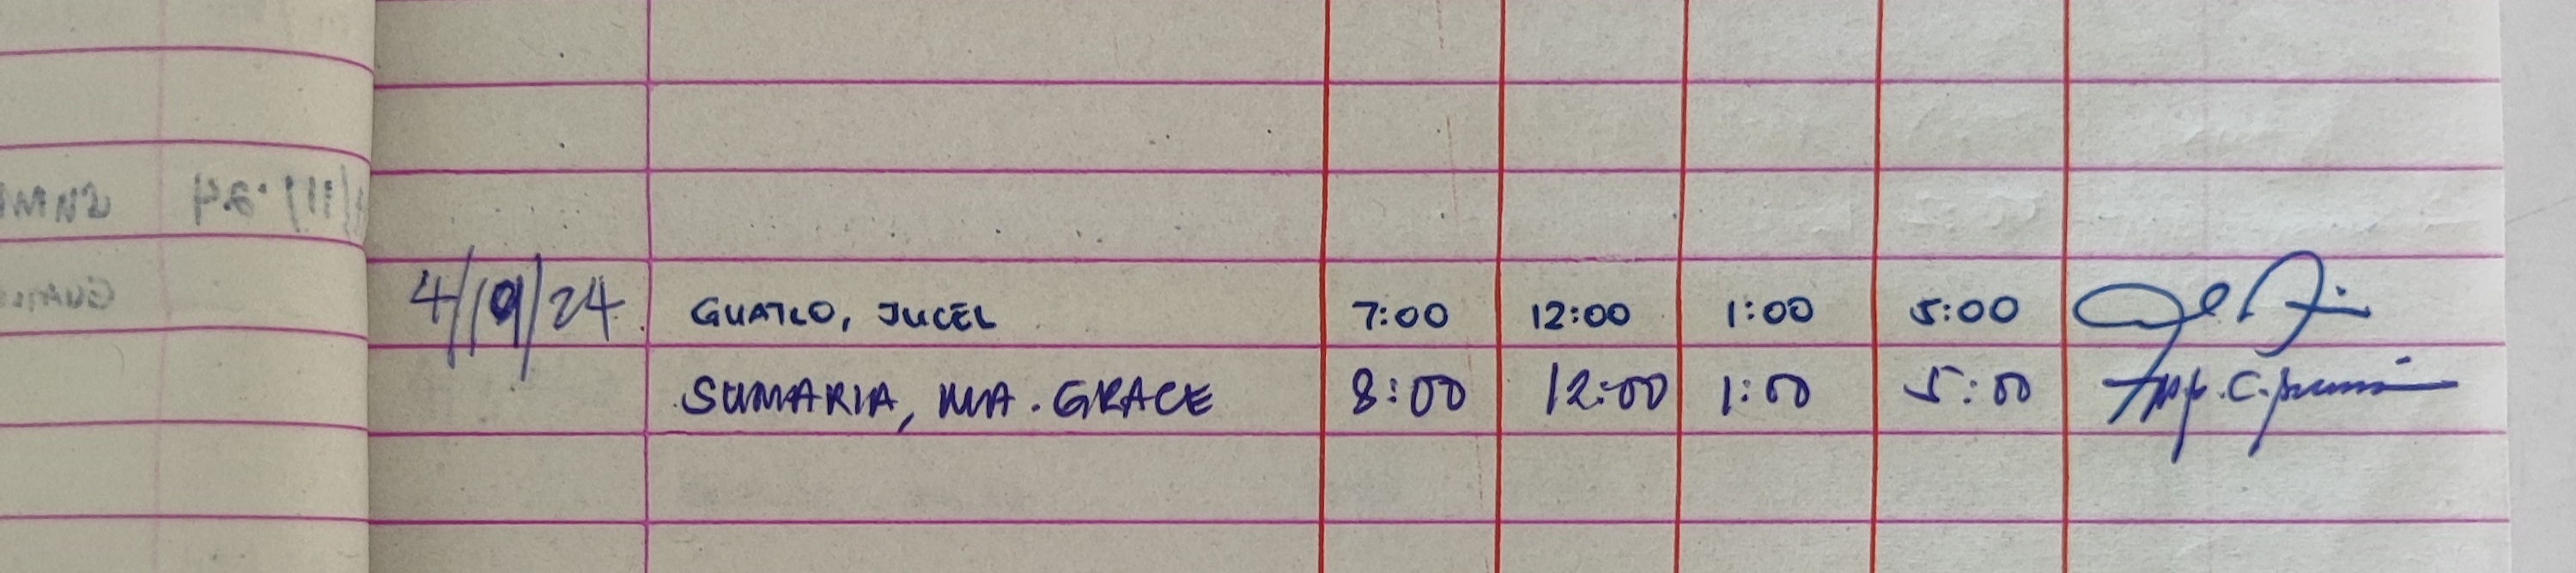 4/19/24 GUATLO, JUCEL 7:00 12:00 1:00 5:00
SUMARIA, MA. GRACE 8:00 12:00 1:00 5:00